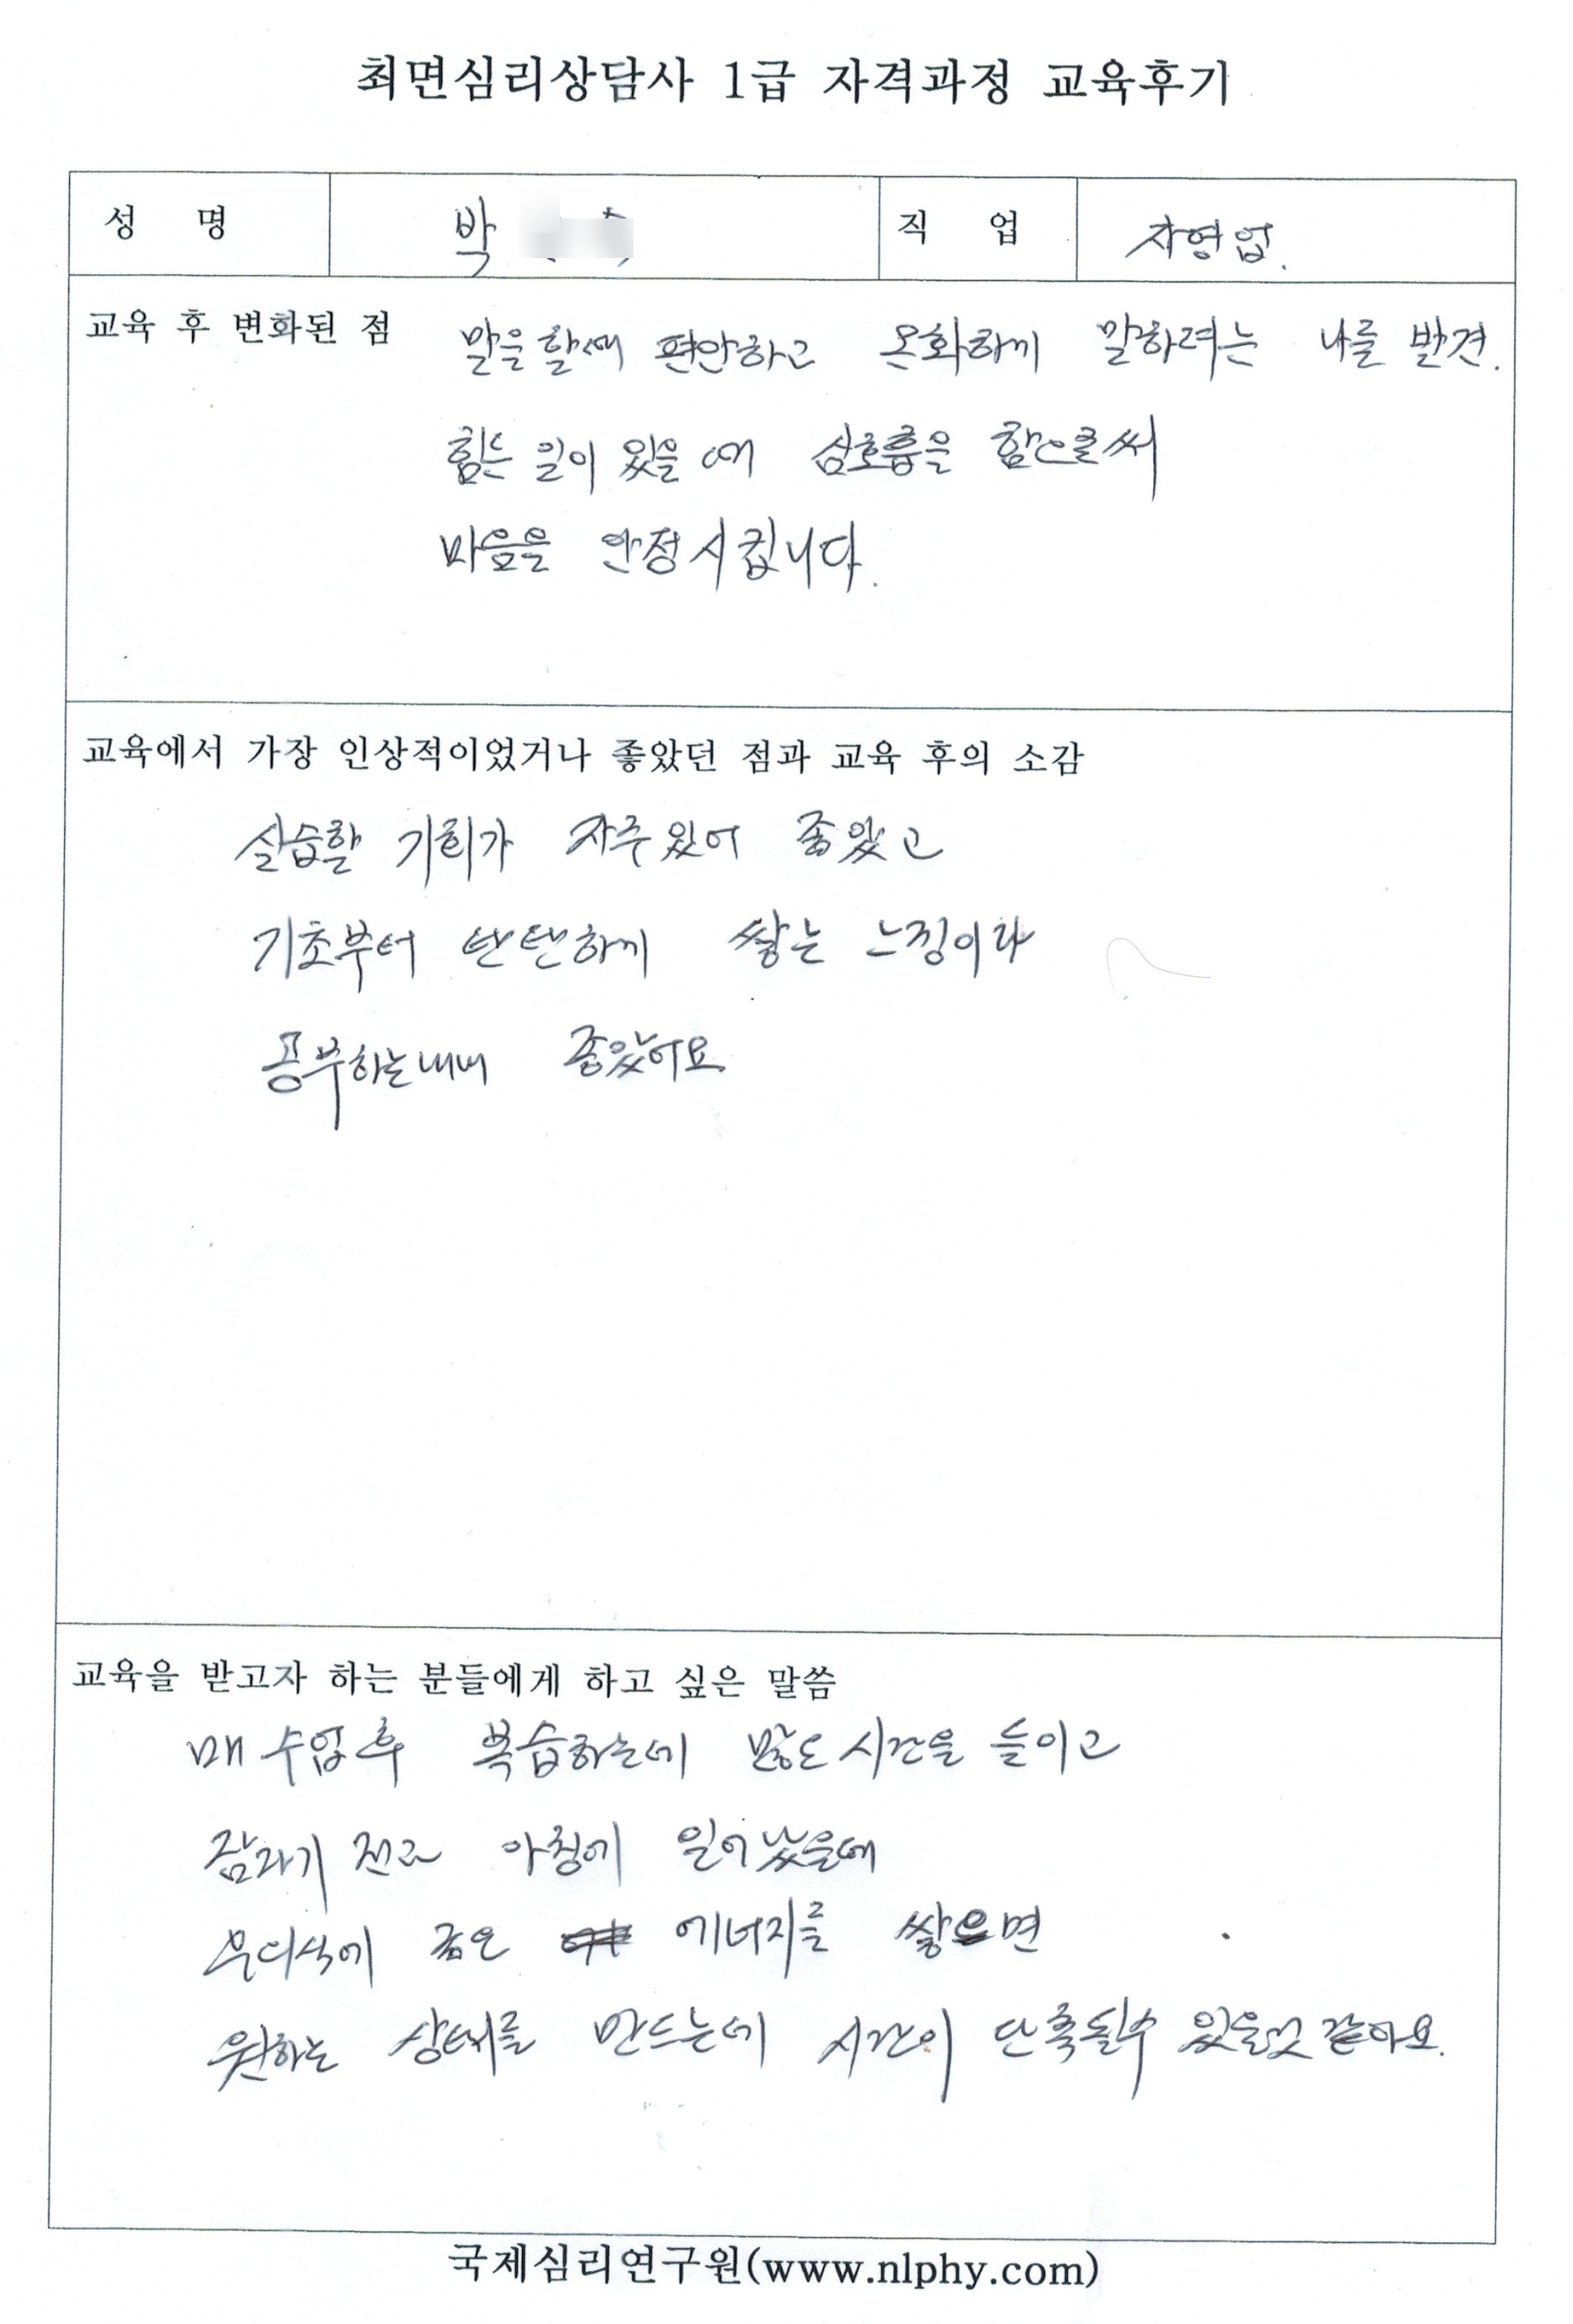 최면심리상담사 1급 자격과정 교육후기
성 명 박 직 업 자영업.
교육 후 변화된 점 말을 할때 편안하고 온화하게 말하려는 나를 발견.
힘든 일이 있을 때 심호흡을 함으로써
마음을 안정시킵니다.
교육에서 가장 인상적이었거나 좋았던 점과 교육 후의 소감
실습할 기회가 자주 있어 좋았고
기초부터 탄탄하게 쌓는 느낌이라
공부하는내내 좋았어요
교육을 받고자 하는 분들에게 하고 싶은 말씀
매 수업 후 복습하는데 많은 시간을 들이고
잠자기 전과 아침에 일어났을때
무의식에 좋은 에너지를 쌓으면
원하는 상태를 만드는데 시간이 단축될수 있을것 같아요.
국제심리연구원(www.nlphy.com)